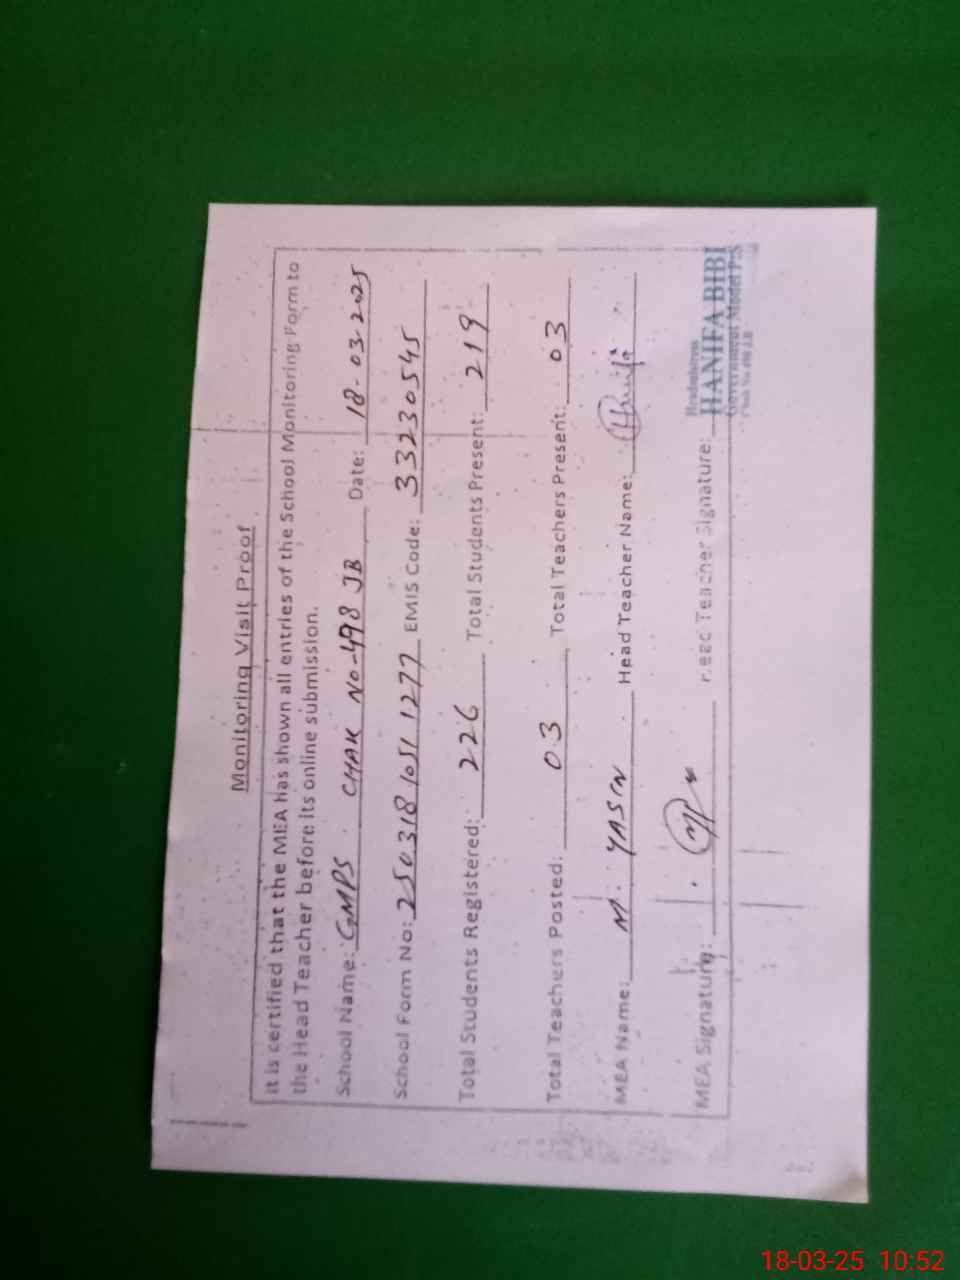 Monitoring Visit Proof
It is certified that the MEA has shown all entries of the School Monitoring Form to
the Head Teacher before its online submission.
School Name: GMPS CHAK NO-498 JB Date: 18-03-2025
School Form No: 250318 1051 1277 EMIS Code: 33230545
Total Students Registered: 226 Total Students Present: 219
Total Teachers Posted: 03 Total Teachers Present: 03
MEA Name: M. YASIN Head Teacher Name: Hanifa
MEA Signature: Head Teacher Signature:
Headmistress
HANIFA BIBI
Government Model P/S
Chak No 498 J.B
18-03-25 10:52